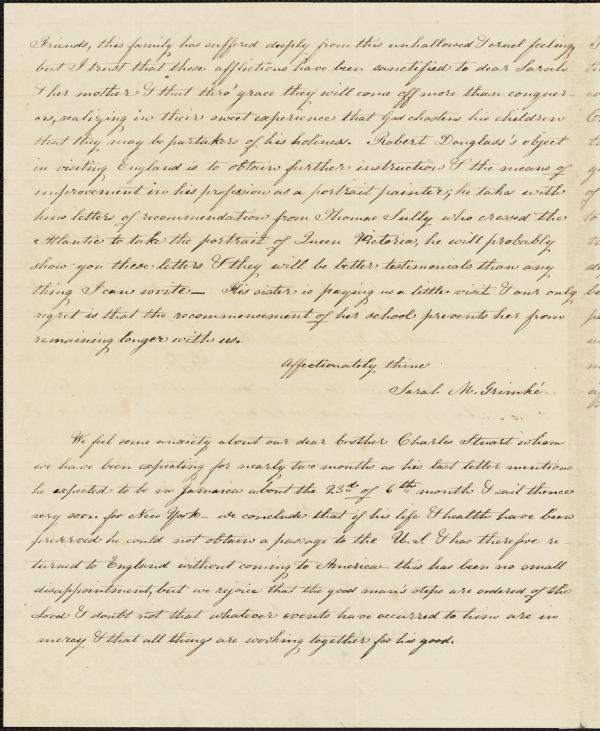 Friends, this family has suffered deeply from this unhallowed & cruel feeling,
but I trust that these afflictions have been sanctified to dear Sarah
& her mother & that thro' grace they will come off more than conquer-
ors, realizing in their sweet experience that God chastens his children
that they may be partakers of his holiness. Robert Douglass's object
in visiting England is to obtain further instruction & the means of
improvement in his profession as a portrait painter; he takes with
him letters of recommendation from Thomas Sully who crossed the
Atlantic to take the portrait of Queen Victoria, he will probably
show you these letters & they will be better testimonials than any
thing I can write— His sister is paying us a little visit & our only
regret is that the recommencement of her school prevents her from
remaining longer with us.
Affectionately thine
Sarah M. Grimké
We feel some anxiety about our dear brother Charles Stuart whom
we have been expecting for nearly two months as his last letter mentions
he expected to be in Jamaica about the 23rd of 6th month & sail thence
very soon for New York— we conclude that if his life & health have been
preserved he could not obtain a passage to the U.S. & has therefore re-
turned to England without coming to America— this has been no small
disappointment, but we rejoice that the good man's steps are ordered of the
Lord & doubt not that whatever events have occurred to him are in
mercy & that all things are working together for his good.